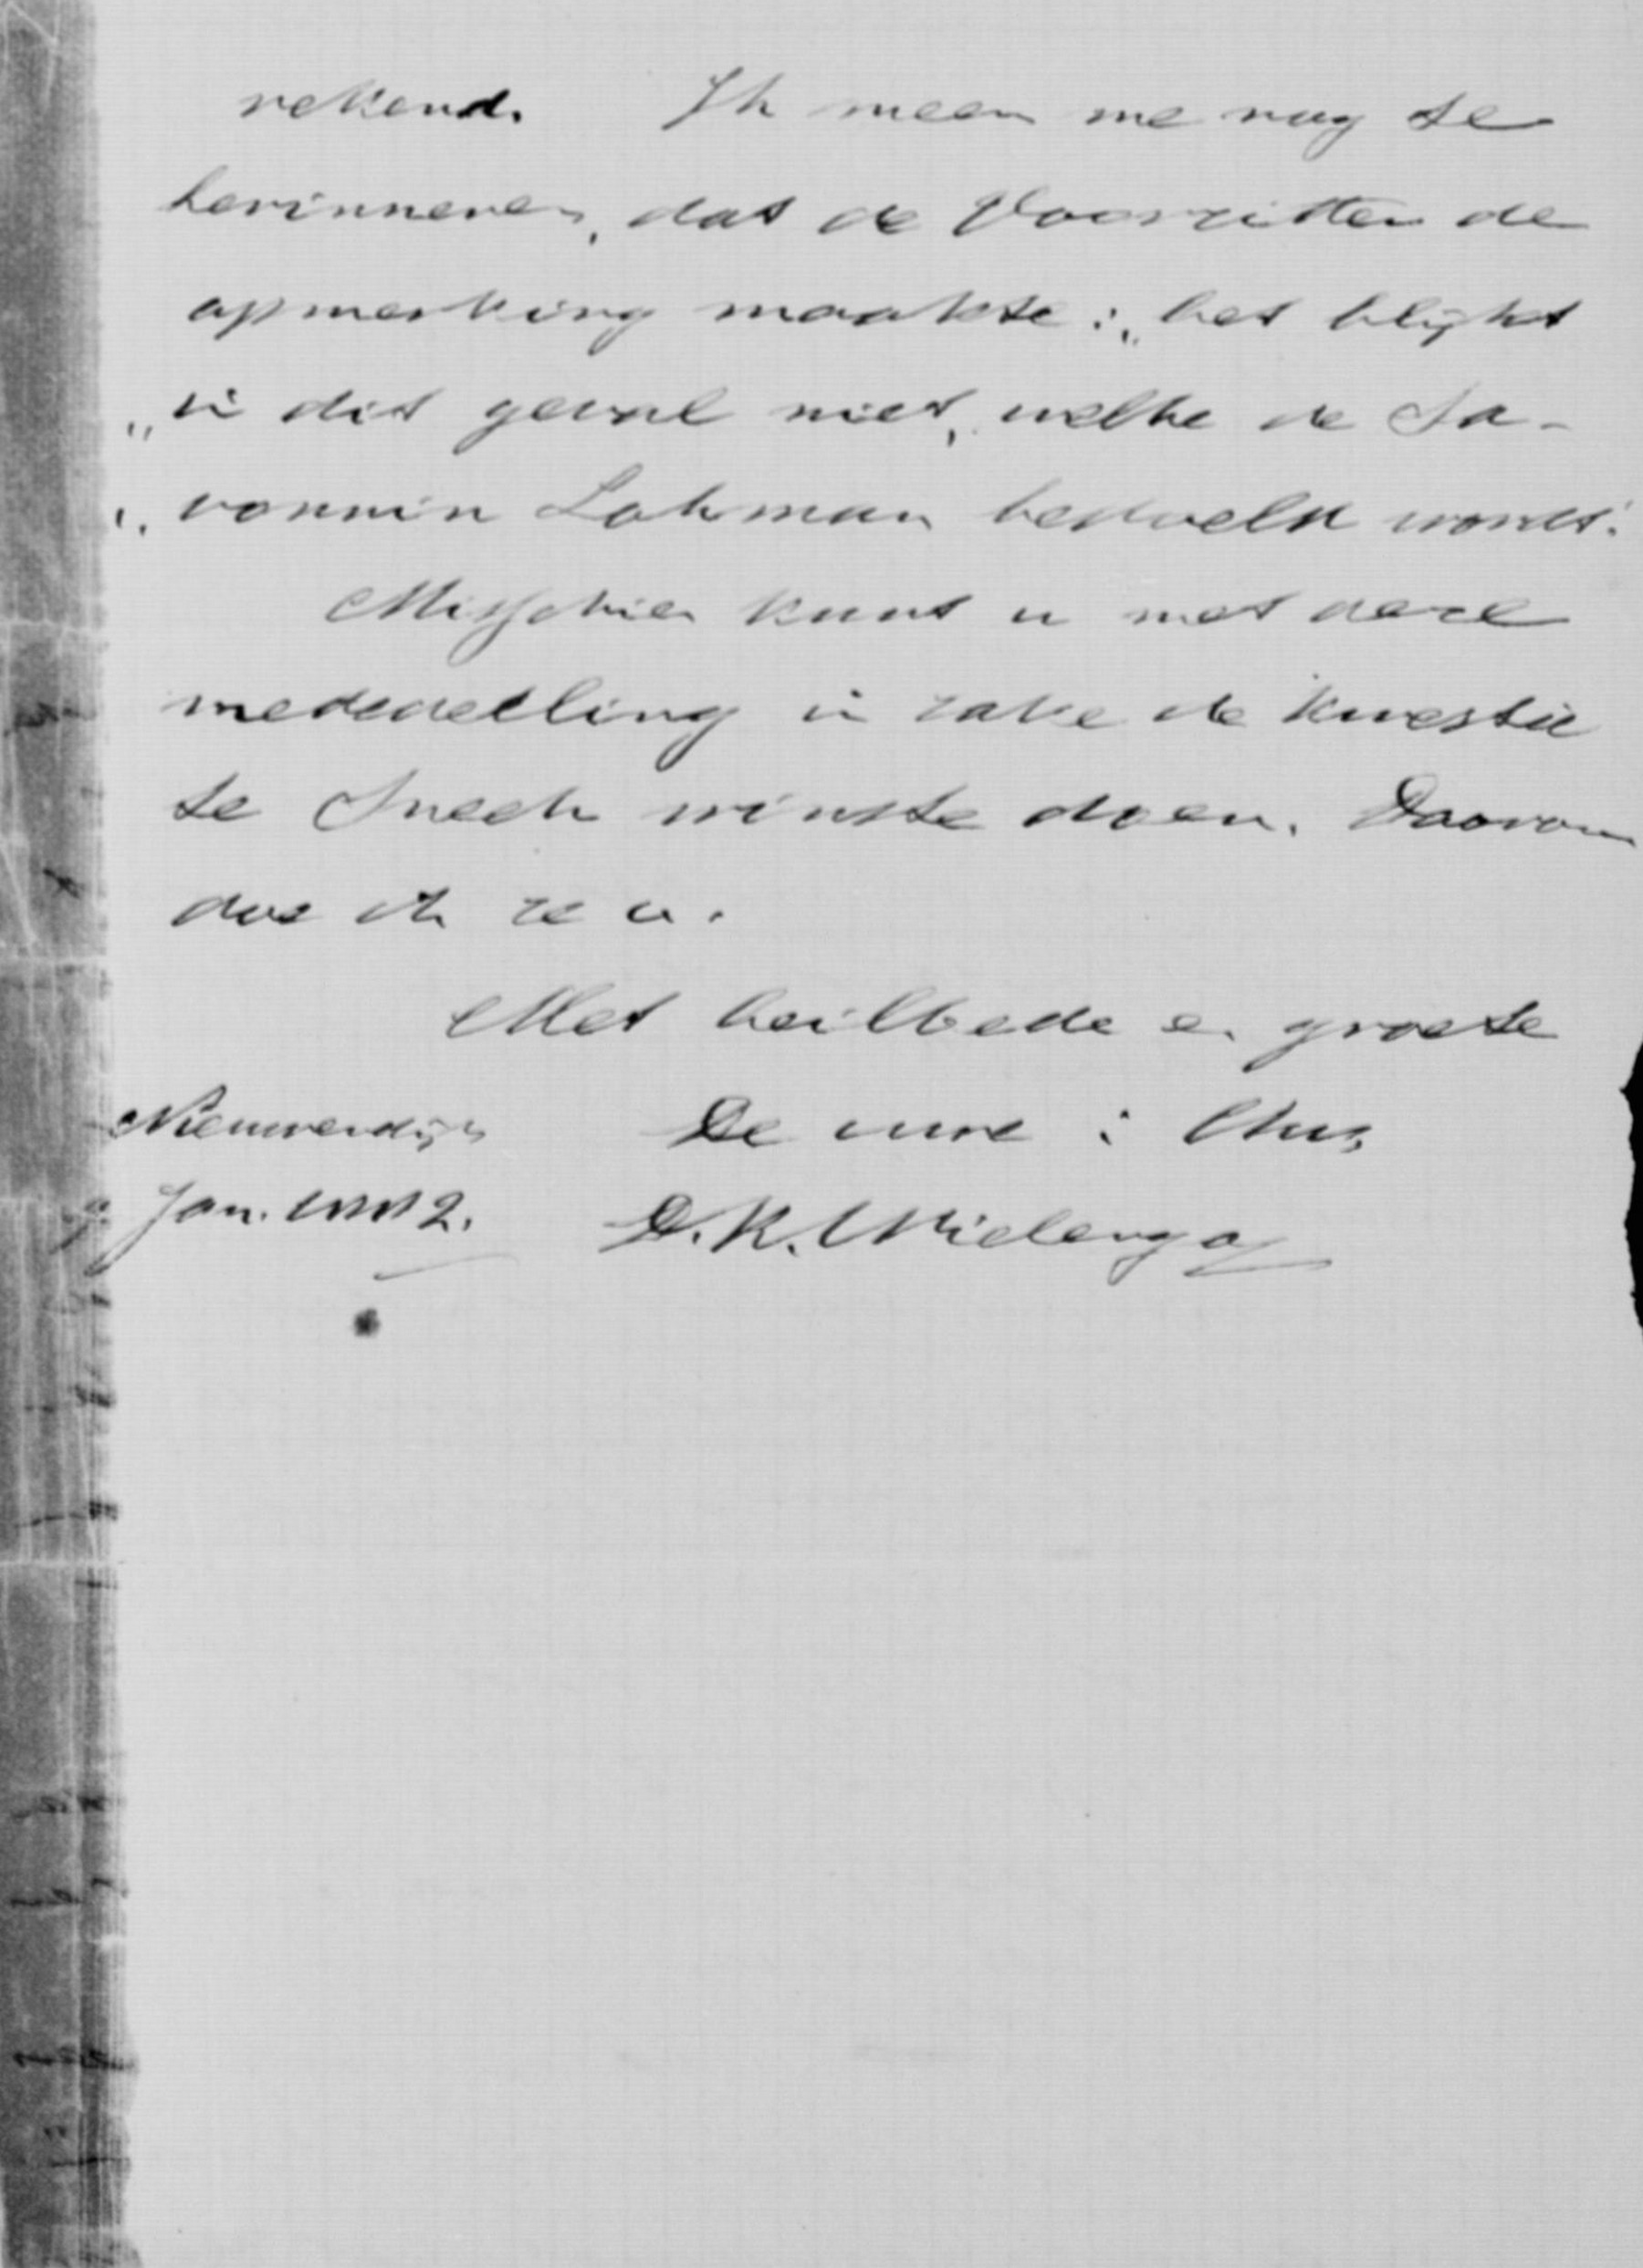 rekend. Ik meen me nog te
herinneren, dat de Voorzitter de
opmerking maakte: „het blijkt
„in dit geval niet, welke de Sa-
„vornin Lohman bedoeld wordt."
Misschien kunt u met deze
mededeeling in zake de kwestie
te Sneek winste doen. Daarom
doe ik ze u.
Met heilbede en groete
Nieuwendijk De uwe i. Chr.
Jan. 2. D. K. Wielenga